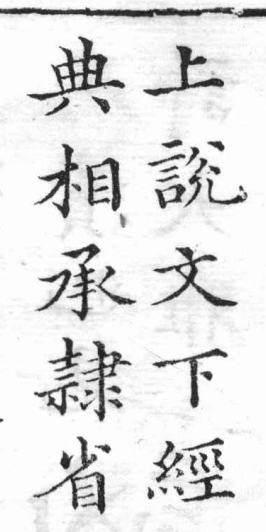 上說文下經
典相承隷省